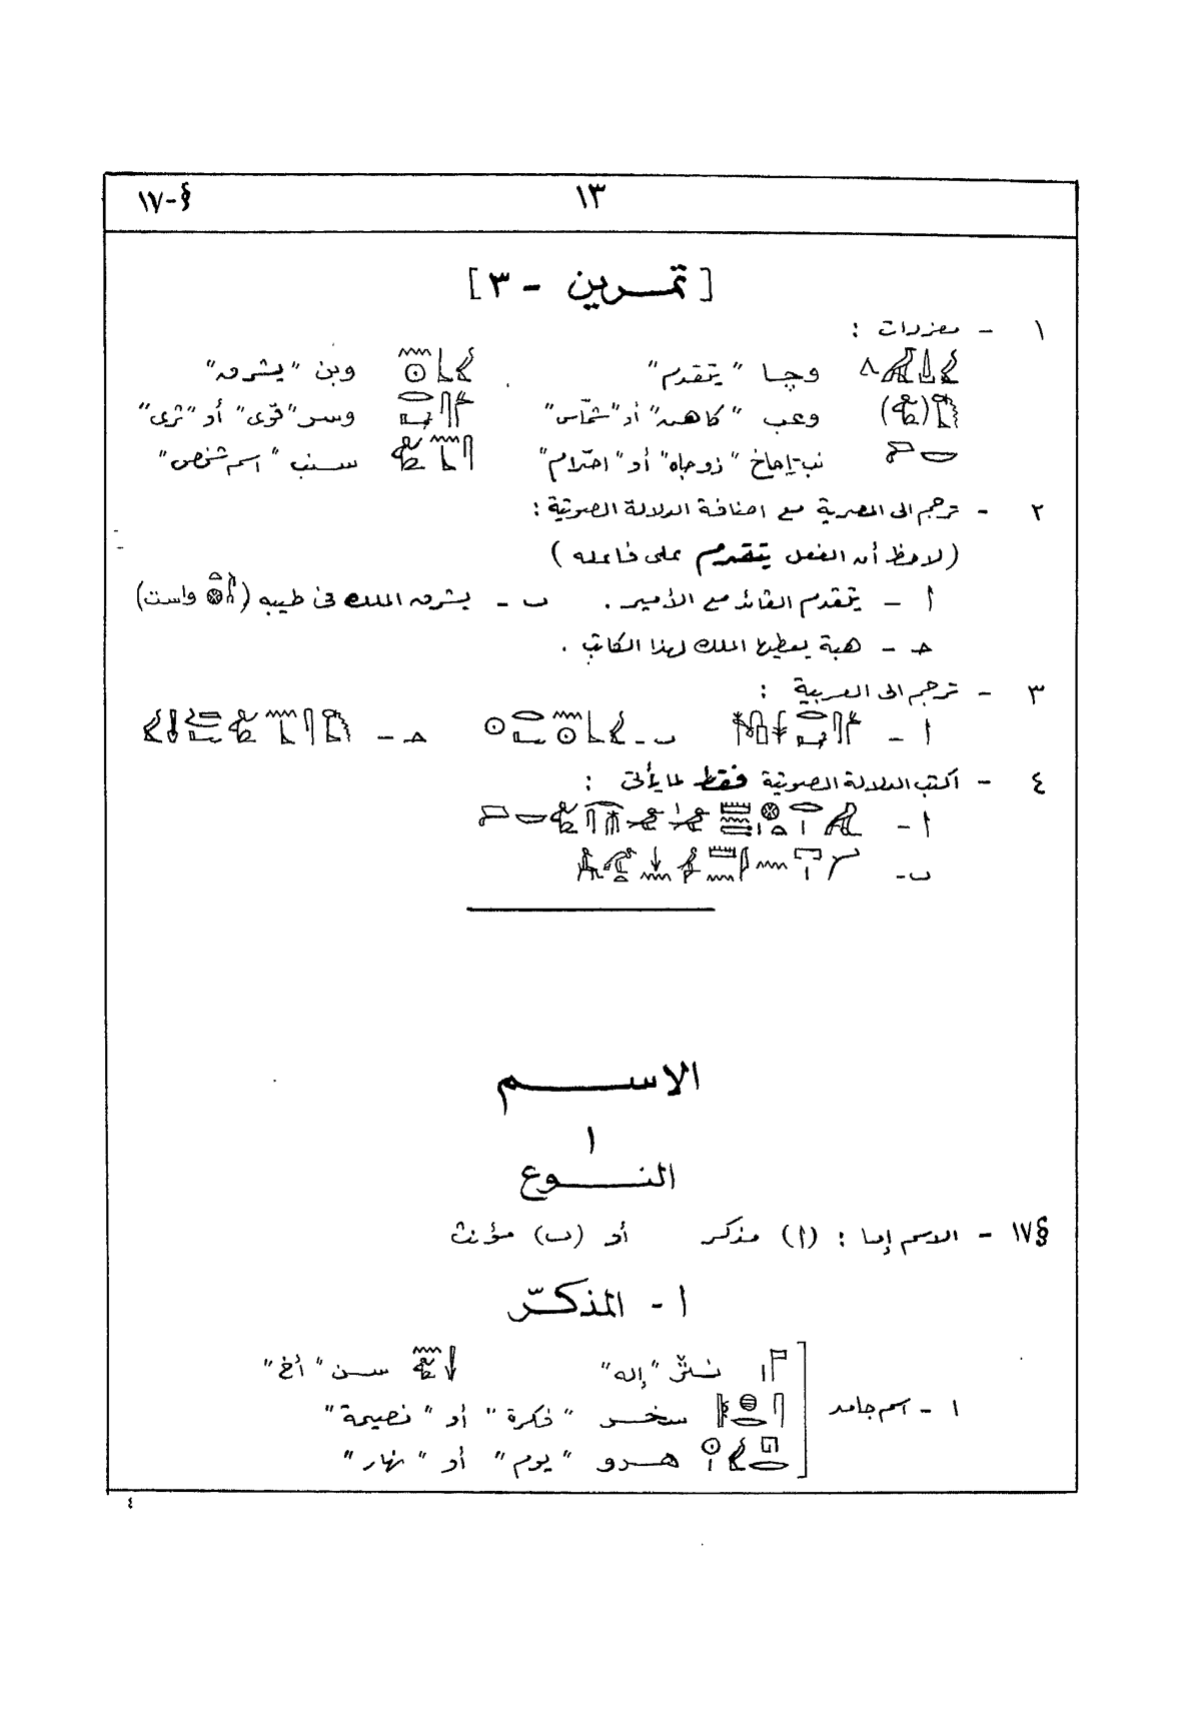 ١٣
§-١٧
[تمرين - ٣]
١ - مفردات :
وچا "يتقدم" وبن "يشرق"
وعب "كاهن" أو "شمّاس" وسر "قوى" أو "ثرى"
نب-إماخ "ذو جاه" أو "احترام" سنب "اسم شخص"
٢ - ترجم الى المصرية مع اضافة الدلالة الصوتية :
(لاحظ أن الفعل يتقدم على فاعله)
أ - يتقدم القائد مع الأمير . ب - يشرق الملك فى طيبه ( واست)
حـ - هبة يعطيها الملك لهذا الكاتب .
٣ - ترجم الى العربية :
أ - ب - حـ -
٤ - اكتب الدلالة الصوتية فقط لما يأتى :
أ -
ب -
الاسم
١
النوع
§١٧ - الاسم إما : (ا) مذكر أو (ب) مؤنث
أ - المذكّر
١ - اسم جامد
نثر "إله" سن "أخ"
سخر "فكرة" أو "نصيحة"
هرو "يوم" أو "نهار"
٤